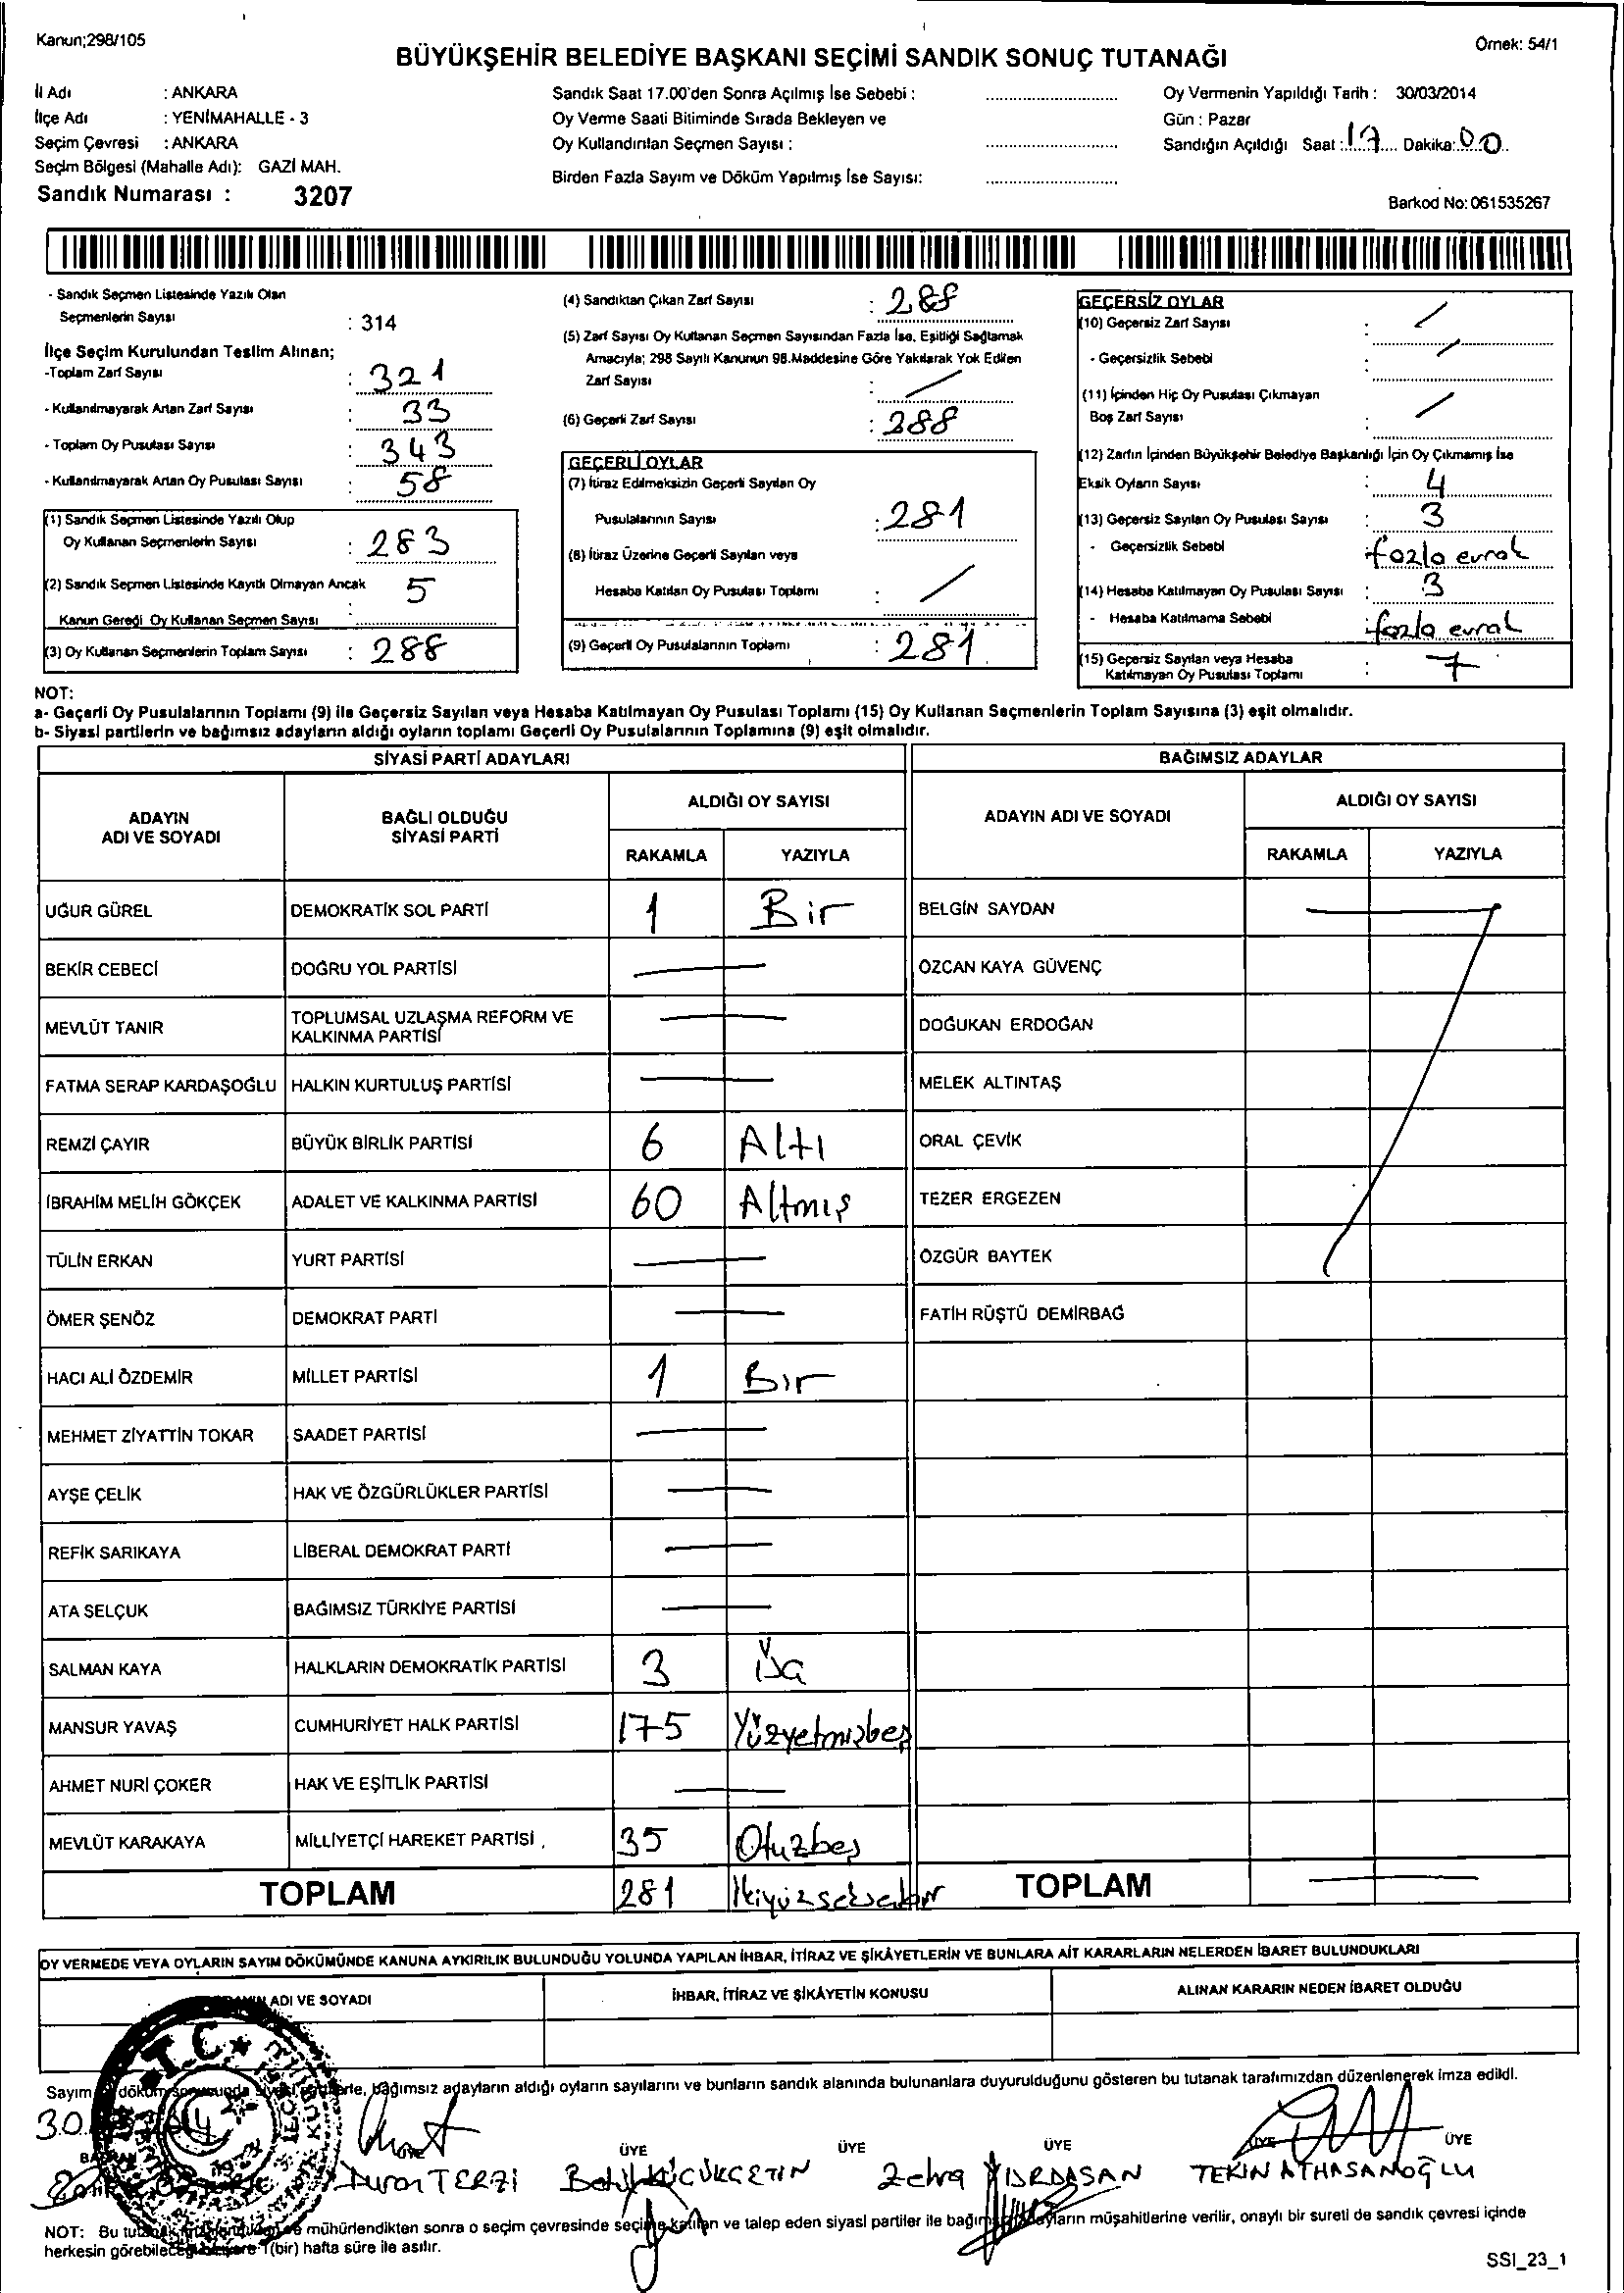 Kanun;298/105
Örnek: 54/1
BÜYÜKŞEHİR BELEDİYE BAŞKANI SEÇİMİ SANDIK SONUÇ TUTANAĞI
İl Adı : ANKARA
İlçe Adı : YENİMAHALLE - 3
Seçim Çevresi : ANKARA
Seçim Bölgesi (Mahalle Adı): GAZİ MAH.
Sandık Numarası : 3207
Sandık Saat 17.00'den Sonra Açılmış İse Sebebi :
Oy Verme Saati Bitiminde Sırada Bekleyen ve
Oy Kullandırılan Seçmen Sayısı :
Birden Fazla Sayım ve Döküm Yapılmış İse Sayısı:
Oy Vermenin Yapıldığı Tarih : 30/03/2014
Gün : Pazar
Sandığın Açıldığı Saat : 17 Dakika: 00
Barkod No: 061535267
- Sandık Seçmen Listesinde Yazılı Olan
Seçmenlerin Sayısı : 314
İlçe Seçim Kurulundan Teslim Alınan;
-Toplam Zarf Sayısı : 321
- Kullanılmayarak Artan Zarf Sayısı : 33
- Toplam Oy Pusulası Sayısı : 343
- Kullanılmayarak Artan Oy Pusulası Sayısı : 58
(1) Sandık Seçmen Listesinde Yazılı Olup
Oy Kullanan Seçmenlerin Sayısı : 283
(2) Sandık Seçmen Listesinde Kayıtlı Olmayan Ancak
Kanun Gereği Oy Kullanan Seçmen Sayısı : 5
(3) Oy Kullanan Seçmenlerin Toplam Sayısı : 288
(4) Sandıktan Çıkan Zarf Sayısı : 288
(5) Zarf Sayısı Oy Kullanan Seçmen Sayısından Fazla İse, Eşitliği Sağlamak
Amacıyla; 298 Sayılı Kanunun 98.Maddesine Göre Yakılarak Yok Edilen
Zarf Sayısı : /
(6) Geçerli Zarf Sayısı : 288
GEÇERLİ OYLAR
(7) İtiraz Edilmeksizin Geçerli Sayılan Oy
Pusulalarının Sayısı : 281
(8) İtiraz Üzerine Geçerli Sayılan veya
Hesaba Katılan Oy Pusulası Toplamı : /
(9) Geçerli Oy Pusulalarının Toplamı : 281
GEÇERSİZ OYLAR
(10) Geçersiz Zarf Sayısı : /
- Geçersizlik Sebebi : /
(11) İçinden Hiç Oy Pusulası Çıkmayan
Boş Zarf Sayısı : /
(12) Zarfın İçinden Büyükşehir Belediye Başkanlığı İçin Oy Çıkmamış İse
Eksik Oyların Sayısı : 4
(13) Geçersiz Sayılan Oy Pusulası Sayısı : 3
- Geçersizlik Sebebi : fazla evrak
(14) Hesaba Katılmayan Oy Pusulası Sayısı : 3
- Hesaba Katılmama Sebebi : fazla evrak
(15) Geçersiz Sayılan veya Hesaba
Katılmayan Oy Pusulası Toplamı : 7
NOT:
a- Geçerli Oy Pusulalarının Toplamı (9) ile Geçersiz Sayılan veya Hesaba Katılmayan Oy Pusulası Toplamı (15) Oy Kullanan Seçmenlerin Toplam Sayısına (3) eşit olmalıdır.
b- Siyasi partilerin ve bağımsız adayların aldığı oyların toplamı Geçerli Oy Pusulalarının Toplamına (9) eşit olmalıdır.
SİYASİ PARTİ ADAYLARI
BAĞIMSIZ ADAYLAR
ADAYIN ADI VE SOYADI
BAĞLI OLDUĞU SİYASİ PARTİ
ALDIĞI OY SAYISI
RAKAMLA YAZIYLA
ADAYIN ADI VE SOYADI
ALDIĞI OY SAYISI
RAKAMLA YAZIYLA
UĞUR GÜREL DEMOKRATİK SOL PARTİ 1 Bir BELGİN SAYDAN
BEKİR CEBECİ DOĞRU YOL PARTİSİ — ÖZCAN KAYA GÜVENÇ
MEVLÜT TANIR TOPLUMSAL UZLAŞMA REFORM VE KALKINMA PARTİSİ — DOĞUKAN ERDOĞAN
FATMA SERAP KARDAŞOĞLU HALKIN KURTULUŞ PARTİSİ — MELEK ALTINTAŞ
REMZİ ÇAYIR BÜYÜK BİRLİK PARTİSİ 6 Altı ORAL ÇEVİK
İBRAHİM MELİH GÖKÇEK ADALET VE KALKINMA PARTİSİ 60 Altmış TEZER ERGEZEN
TÜLİN ERKAN YURT PARTİSİ — ÖZGÜR BAYTEK
ÖMER ŞENÖZ DEMOKRAT PARTİ — FATİH RÜŞTÜ DEMİRBAĞ
HACI ALİ ÖZDEMİR MİLLET PARTİSİ 1 Bır
MEHMET ZİYATTİN TOKAR SAADET PARTİSİ —
AYŞE ÇELİK HAK VE ÖZGÜRLÜKLER PARTİSİ —
REFİK SARIKAYA LİBERAL DEMOKRAT PARTİ —
ATA SELÇUK BAĞIMSIZ TÜRKİYE PARTİSİ —
SALMAN KAYA HALKLARIN DEMOKRATİK PARTİSİ 3
MANSUR YAVAŞ CUMHURİYET HALK PARTİSİ 175 Yüzyetmişbeş
AHMET NURİ ÇOKER HAK VE EŞİTLİK PARTİSİ —
MEVLÜT KARAKAYA MİLLİYETÇİ HAREKET PARTİSİ 35 Otuzbeş
TOPLAM 281 İkiyüzseksenbir TOPLAM —
OY VERMEDE VEYA OYLARIN SAYIM DÖKÜMÜNDE KANUNA AYKIRILIK BULUNDUĞU YOLUNDA YAPILAN İHBAR, İTİRAZ VE ŞİKÂYETLERİN VE BUNLARA AİT KARARLARIN NELERDEN İBARET BULUNDUKLARI
ADI VE SOYADI
İHBAR, İTİRAZ VE ŞİKÂYETİN KONUSU
ALINAN KARARIN NEDEN İBARET OLDUĞU
T.C.
Sayım döküm sonucunda bağımsız adayların aldığı oyların sayılarını ve bunların sandık alanında bulunanlara duyurulduğunu gösteren bu tutanak tarafımızdan düzenlenerek imza edildi.
ÜYE ÜYE ÜYE ÜYE ÜYE
TERZİ KÜÇÜKÇETİN Zehra TEKİN ATHASANOĞLU
NOT: Bu mühürlendikten sonra o seçim çevresinde seçime katılan ve talep eden siyasi partiler ile bağımsız adayların müşahitlerine verilir, onaylı bir sureti de sandık çevresi içinde
herkesin görebileceği (bir) hafta süre ile asılır.
SSI_23_1